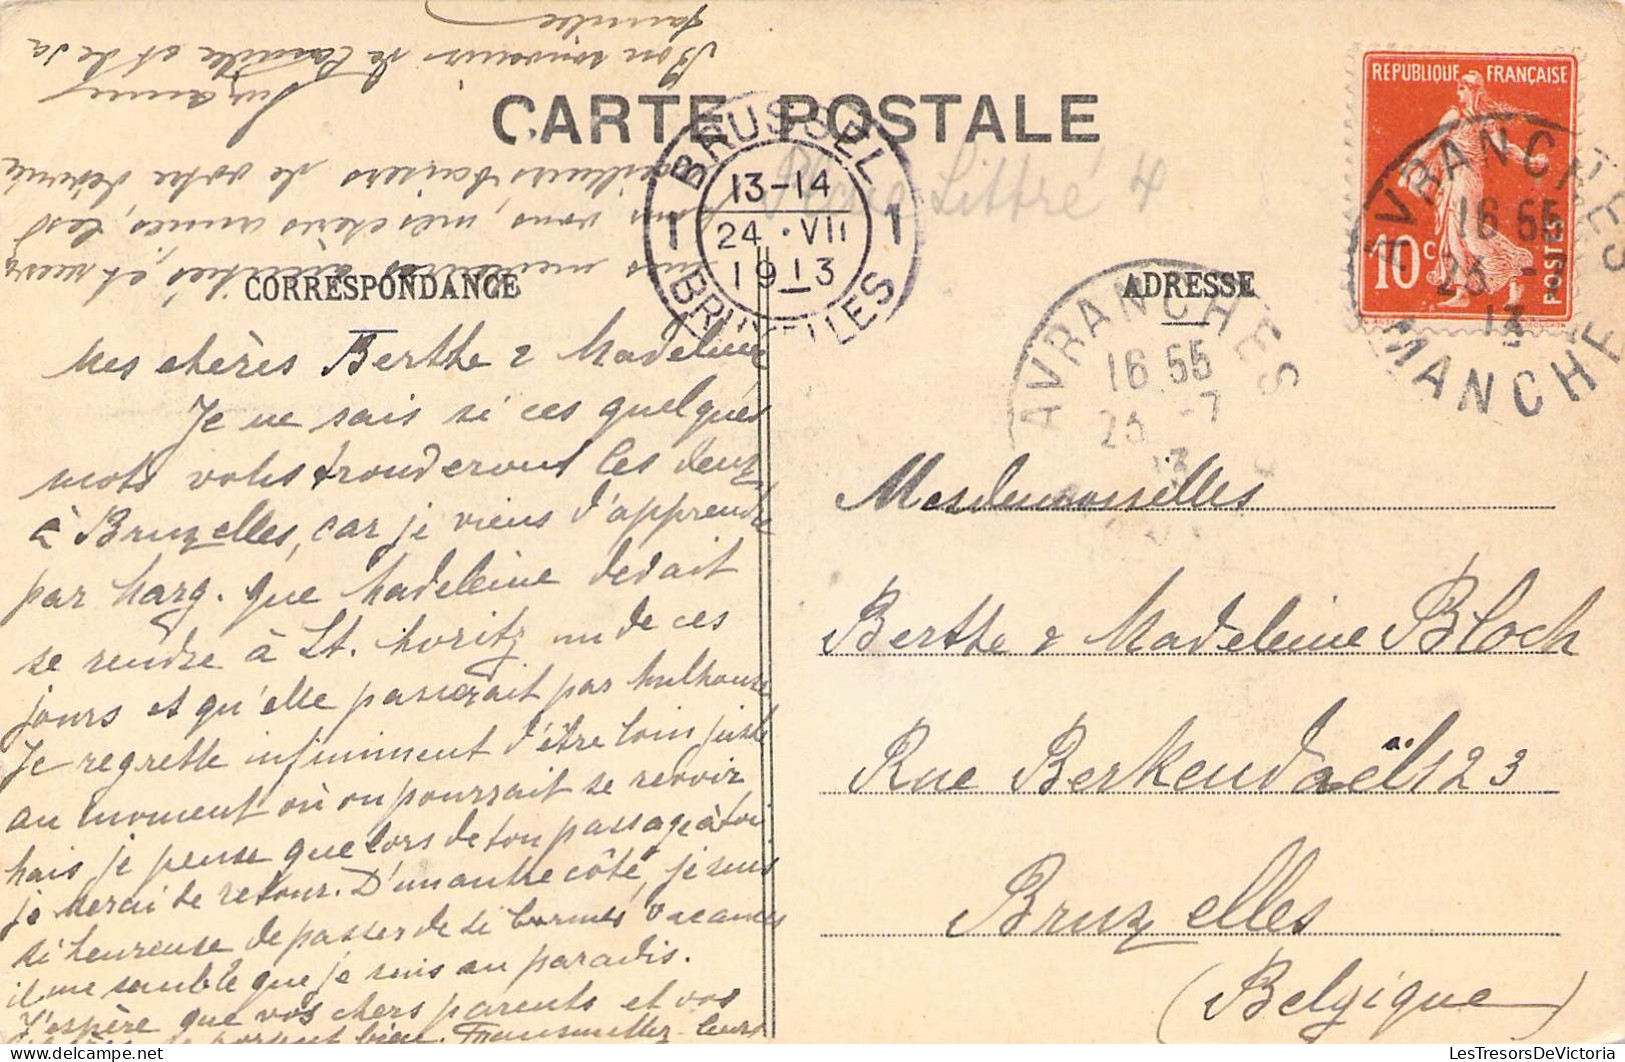 CARTE POSTALE
CORRESPONDANCE
ADRESSE
RÉPUBLIQUE FRANÇAISE
10c
POSTES
AVRANCHES
16 55
23 -7
13
MANCHE
AVRANCHES
16 55
23 -7
13
BRUSSEL
1 13-14 1
24 · VII
1913
BRUXELLES
Place Littré 4
Mes chères Berthe & Madeleine
Je ne sais si ces quelques
mots vous trouveront les deux
à Bruxelles, car je viens d'apprendre
par Marg. que Madeleine devait
se rendre à St. Moritz un de ces
jours et qu'elle passerait par Mulhouse
Je regrette infiniment d'être loin juste
au moment où on pourrait se revoir
Mais je pense que lors de ton passage à toi
je serai de retour. D'un autre côté, je suis
si heureuse de passer de si bonnes vacances
il me semble que je suis au paradis.
J'espère que vos chers parents et vos
se portent bien. Transmettez-leurs
mes meilleures amitiés, et recevez
pour vous, mes chères amies, les
meilleurs baisers de votre dévouée
Suzanne
Bon souvenir de Camille et de sa
famille
Mesdemoiselles
Berthe & Madeleine Bloch
Rue Berkendaël 123
Bruxelles
(Belgique)
LesTresorsDeVictoria